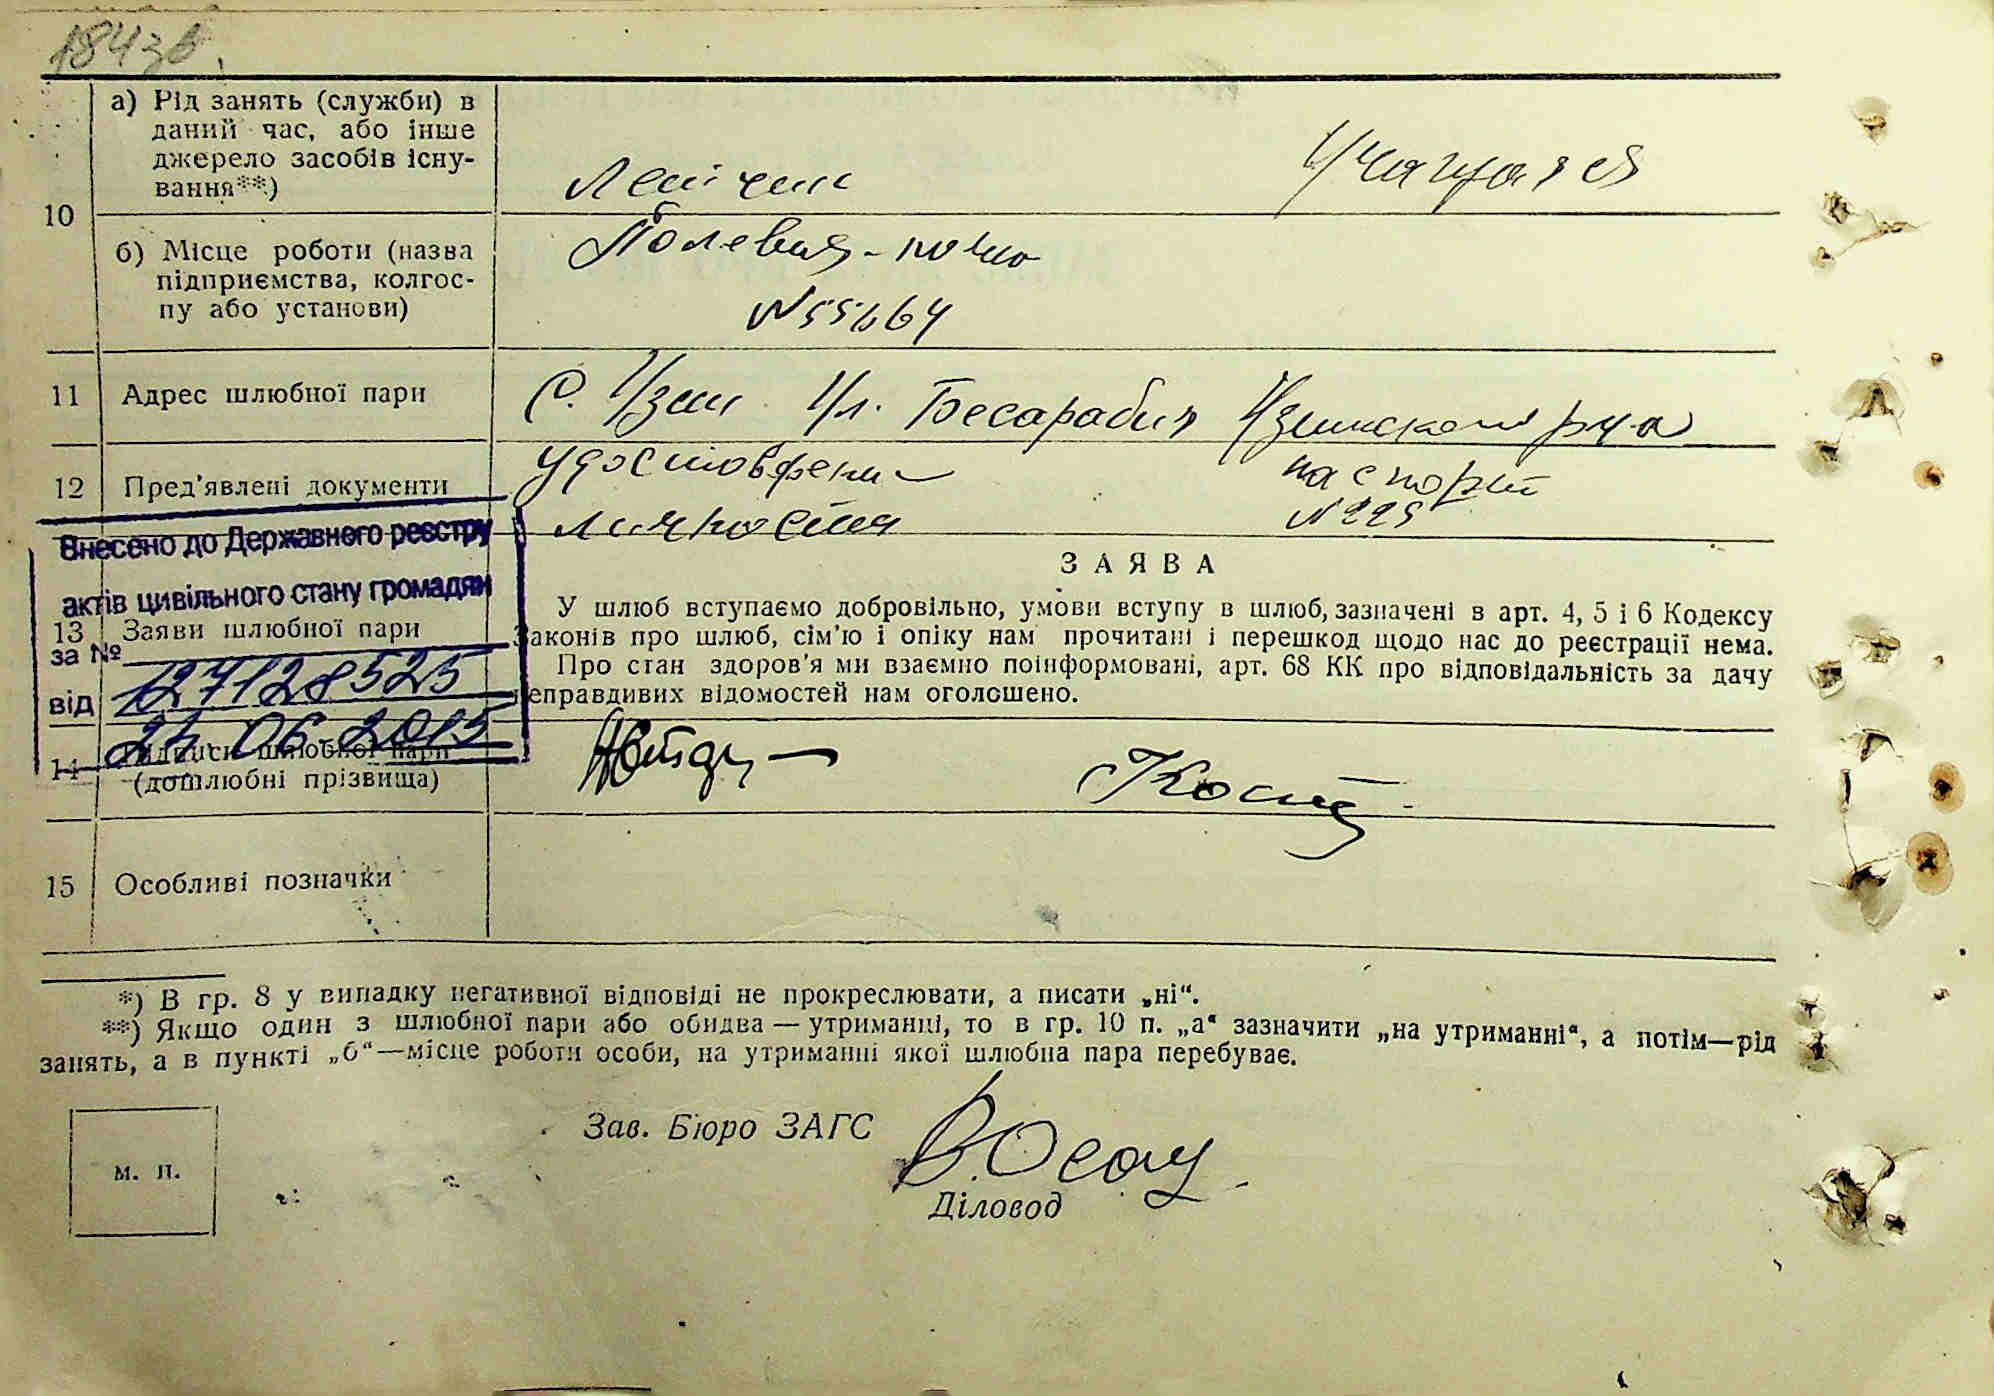 184зв.
10
а) Рід занять (служби) в
даний час, або інше
джерело засобів існу-
вання**)
Летчик
Учащаяся
б) Місце роботи (назва
підприємства, колгос-
пу або установи)
Полевая-почта
N55664
11 Адрес шлюбної пари
С. Узин Ул. Бесарабия Узинского р-на
12 Пред'явлені документи
удостоверение
паспорт
личности
N225
Внесено до Державного реєстру
актів цивільного стану громадян
за №
127128525
від
24.06.2015
ЗАЯВА
13 Заяви шлюбної пари
У шлюб вступаємо добровільно, умови вступу в шлюб, зазначені в арт. 4, 5 і 6 Кодексу
Законів про шлюб, сім'ю і опіку нам прочитані і перешкод щодо нас до реєстрації нема.
Про стан здоров'я ми взаємно поінформовані, арт. 68 КК про відповідальність за дачу
неправдивих відомостей нам оголошено.
14 Підписи шлюбної пари
(дошлюбні прізвища)
15 Особливі позначки
*) В гр. 8 у випадку негативної відповіді не прокреслювати, а писати „ні“.
**) Якщо один з шлюбної пари або обидва — утриманці, то в гр. 10 п. „а“ зазначити „на утриманні“, а потім—рід
занять, а в пункті „б“—місце роботи особи, на утриманні якої шлюбна пара перебуває.
м. п.
Зав. Бюро ЗАГС
Діловод